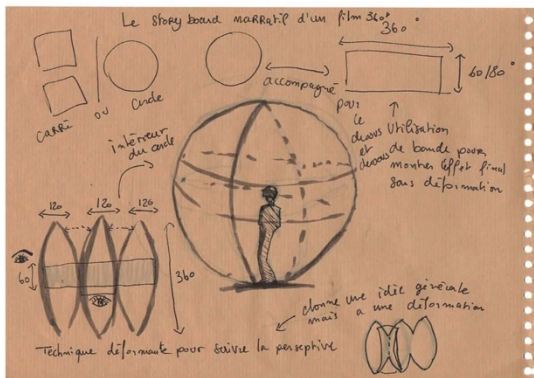 Le story board narratif d'un film 360°
360°
60/80°
carré
ou
cercle
accompagné
pour
le
dessus
et
dessous
Utilisation
de bande pour
montrer l'effet final
sans déformation
intérieur
du cercle
120
120
120
60
360
donne une idée générale
mais a une déformation
Technique déformante pour suivre la perseptive